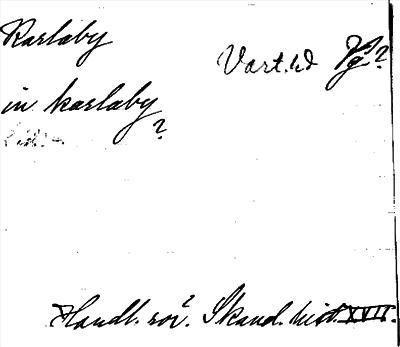 Karlaby
Vart.hd Vg?
in karlaby
?
Handl. rör? Skand. hist. XVII.